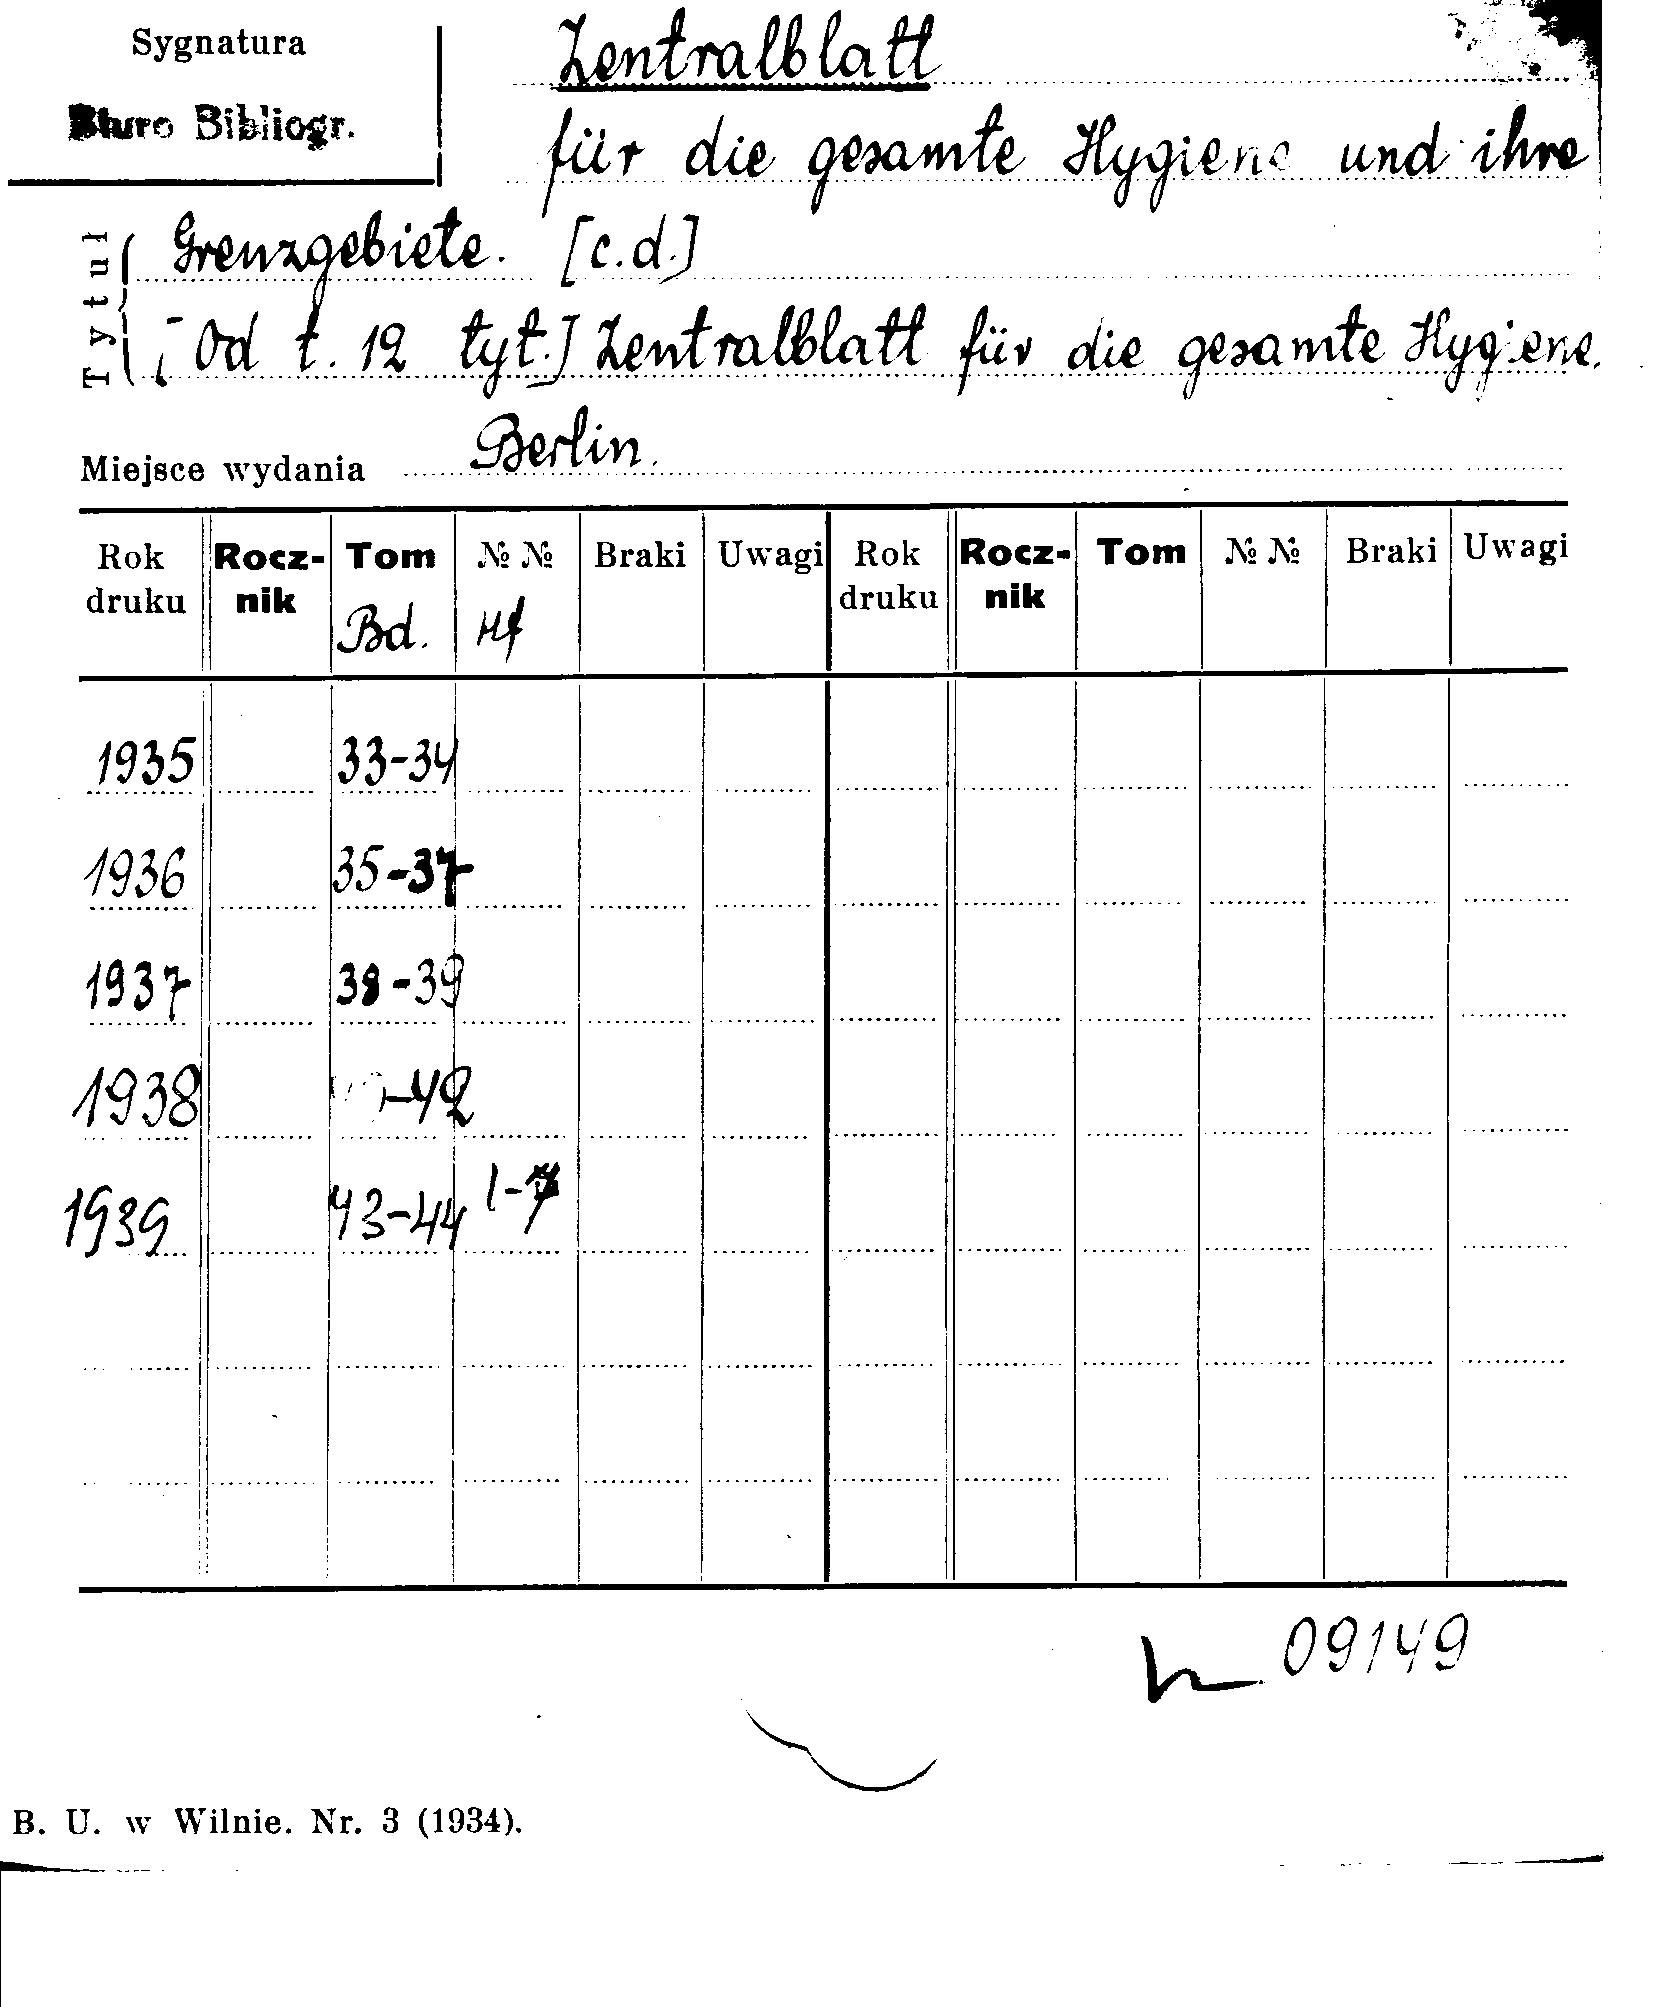 Sygnatura
Biuro Bibliogr.
Zentralblatt
für die gesamte Hygiene und ihre
Tytuł
Grenzgebiete. [c.d.]
[Od t. 12 tyt.] Zentralblatt für die gesamte Hygiene.
Miejsce wydania Berlin.
Rok druku Rocznik Tom № № Braki Uwagi Rok druku Rocznik Tom № № Braki Uwagi
Bd.
1935 33-34
1936 35-37
1937 38-39
1938 -42
1939 43-44 1-7
09149
B. U. w Wilnie. Nr. 3 (1934).